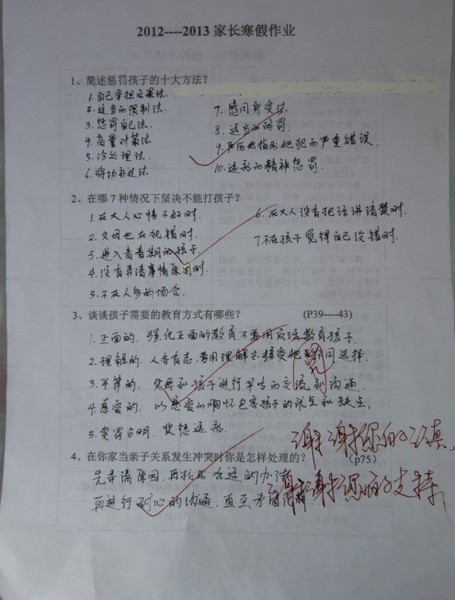 2012----2013 家长寒假作业
1、简述惩罚孩子的十大方法？
1.自己承担后果法.
2.适当的限制法.
3.惩罚自己法.
4.商量对策法.
5.冷处理法.
6.将功补过法
7.
8.适当的
9.严厉地指出她犯的严重错误.
10.适度的精神惩罚.
2、在哪 7 种情况下坚决不能打孩子？
1.在大人心情不好时.
2.父母也在犯错时.
3.进入青春期的孩子.
4.没有弄清事情原因时.
5.不在人多的场合.
6.在大人没有把话讲清楚时.
7.不在孩子觉得自己没错时.
3、谈谈孩子需要的教育方式有哪些？ (P39----43)
1.正面的. 强记正面的教育.不要用反话教育孩子.
2.理解的. 人各有志.要用理解去接受她的不同选择.
3.平等的. 父母和孩子进行平等的交流和沟通.
4.慈爱的. 以慈爱的胸怀包容孩子的优点和缺点.
5.赏罚分明. 奖惩适度.
4、在你家当亲子关系发生冲突时你是怎样处理的？ (p75)
先弄清原因.再找出合适的办法
再进行耐心的沟通.直至矛盾化解
谢谢你的认真
谢谢你的支持